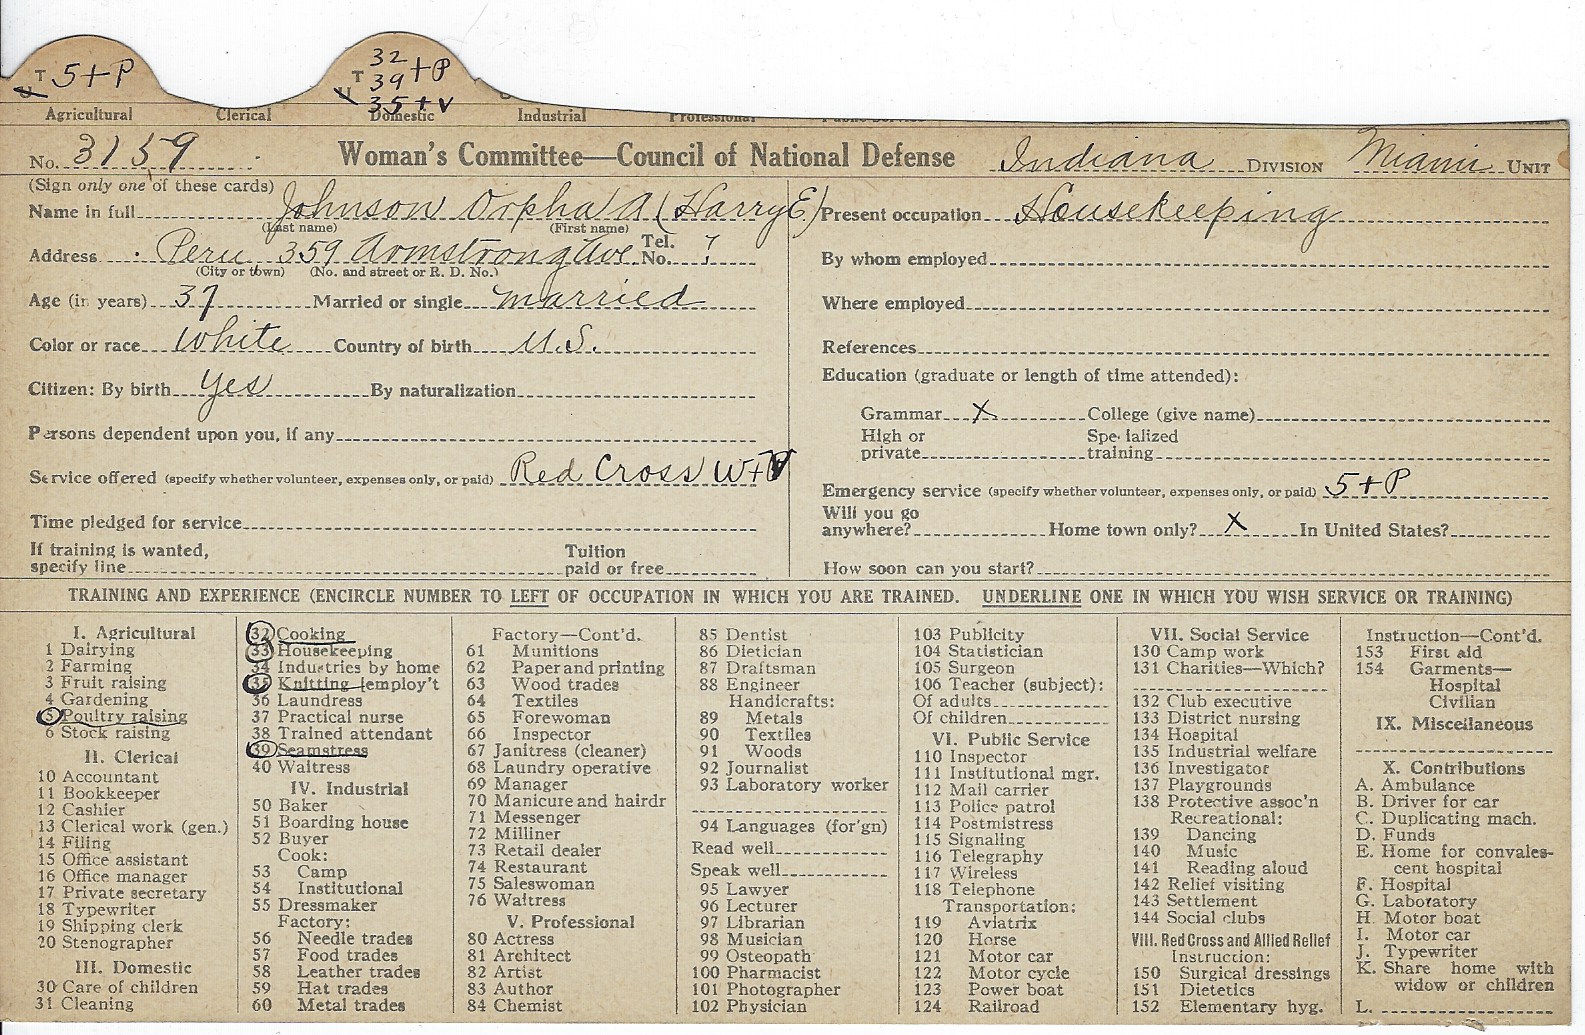 T 5+P
U
32
T 39 +P
U 35+V
Agricultural Clerical Domestic Industrial Professional
No. 3159 Woman's Committee—Council of National Defense Indiana DIVISION Miami UNIT
(Sign only one of these cards)
Name in full Johnson Orpha A (Harry E.)
(Last name) (First name)
Address Peru 359 Armstrong Ave. Tel. No. ?
(City or town) (No. and street or R. D. No.)
Age (in years) 37 Married or single married
Color or race White Country of birth U.S.
Citizen: By birth Yes By naturalization
Persons dependent upon you, if any
Service offered (specify whether volunteer, expenses only, or paid) Red Cross W+V
Time pledged for service
If training is wanted,
specify line Tuition paid or free
Present occupation Housekeeping
By whom employed
Where employed
References
Education (graduate or length of time attended):
Grammar X College (give name)
High or private Specialized training
Emergency service (specify whether volunteer, expenses only, or paid) 5+P
Will you go
anywhere? Home town only? X In United States?
How soon can you start?
TRAINING AND EXPERIENCE (ENCIRCLE NUMBER TO LEFT OF OCCUPATION IN WHICH YOU ARE TRAINED. UNDERLINE ONE IN WHICH YOU WISH SERVICE OR TRAINING)
I. Agricultural
1 Dairying
2 Farming
3 Fruit raising
4 Gardening
5 Poultry raising
6 Stock raising
II. Clerical
10 Accountant
11 Bookkeeper
12 Cashier
13 Clerical work (gen.)
14 Filing
15 Office assistant
16 Office manager
17 Private secretary
18 Typewriter
19 Shipping clerk
20 Stenographer
III. Domestic
30 Care of children
31 Cleaning
32 Cooking
33 Housekeeping
34 Industries by home
35 Knitting [employ't
36 Laundress
37 Practical nurse
38 Trained attendant
39 Seamstress
40 Waitress
IV. Industrial
50 Baker
51 Boarding house
52 Buyer
Cook:
53 Camp
54 Institutional
55 Dressmaker
Factory:
56 Needle trades
57 Food trades
58 Leather trades
59 Hat trades
60 Metal trades
Factory—Cont'd.
61 Munitions
62 Paper and printing
63 Wood trades
64 Textiles
65 Forewoman
66 Inspector
67 Janitress (cleaner)
68 Laundry operative
69 Manager
70 Manicure and hairdr
71 Messenger
72 Milliner
73 Retail dealer
74 Restaurant
75 Saleswoman
76 Waitress
V. Professional
80 Actress
81 Architect
82 Artist
83 Author
84 Chemist
85 Dentist
86 Dietician
87 Draftsman
88 Engineer
Handicrafts:
89 Metals
90 Textiles
91 Woods
92 Journalist
93 Laboratory worker
94 Languages (for'gn)
Read well
Speak well
95 Lawyer
96 Lecturer
97 Librarian
98 Musician
99 Osteopath
100 Pharmacist
101 Photographer
102 Physician
103 Publicity
104 Statistician
105 Surgeon
106 Teacher (subject):
Of adults
Of children
VI. Public Service
110 Inspector
111 Institutional mgr.
112 Mail carrier
113 Police patrol
114 Postmistress
115 Signaling
116 Telegraphy
117 Wireless
118 Telephone
Transportation:
119 Aviatrix
120 Horse
121 Motor car
122 Motor cycle
123 Power boat
124 Railroad
VII. Social Service
130 Camp work
131 Charities—Which?
132 Club executive
133 District nursing
134 Hospital
135 Industrial welfare
136 Investigator
137 Playgrounds
138 Protective assoc'n
Recreational:
139 Dancing
140 Music
141 Reading aloud
142 Relief visiting
143 Settlement
144 Social clubs
VIII. Red Cross and Allied Relief
Instruction:
150 Surgical dressings
151 Dietetics
152 Elementary hyg.
Instruction—Cont'd.
153 First aid
154 Garments—
Hospital
Civilian
IX. Miscellaneous
X. Contributions
A. Ambulance
B. Driver for car
C. Duplicating mach.
D. Funds
E. Home for convales-
cent hospital
F. Hospital
G. Laboratory
H. Motor boat
I. Motor car
J. Typewriter
K. Share home with
widow or children
L.